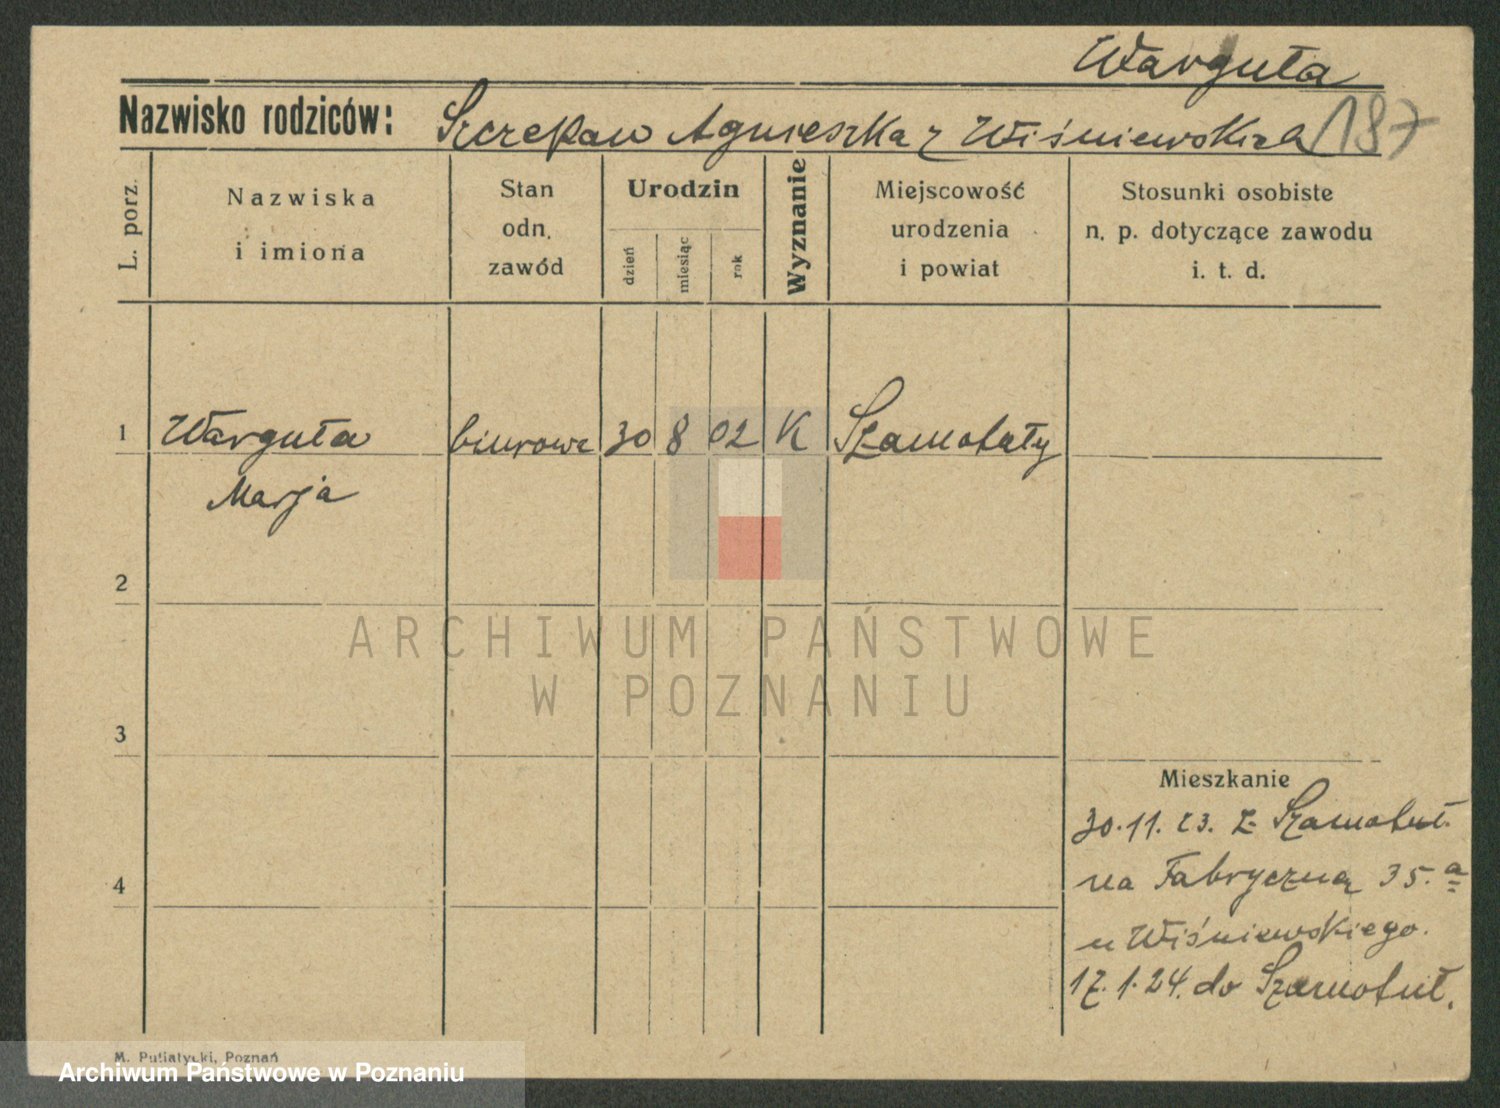 Warguła
Nazwisko rodziców: Szczepan Agnieszka z Wiśniewskich 187
L. porz.
Nazwiska
i imiona
Stan
odn.
zawód
Urodzin
dzień
miesiąc
rok
Wyznanie
Miejscowość
urodzenia
i powiat
Stosunki osobiste
n. p. dotyczące zawodu
i. t. d.
1 Warguła biurowa 30 8 02 K Szamotuły
Marja
2
3
4
ARCHIWUM PAŃSTWOWE
W POZNANIU
Mieszkanie
30.11.23. z Szamotuł.
na Fabryczną 35.a
u Wiśniewskiego.
17.1.24. do Szamotuł.
M. Putiatycki, Poznań
Archiwum Państwowe w Poznaniu